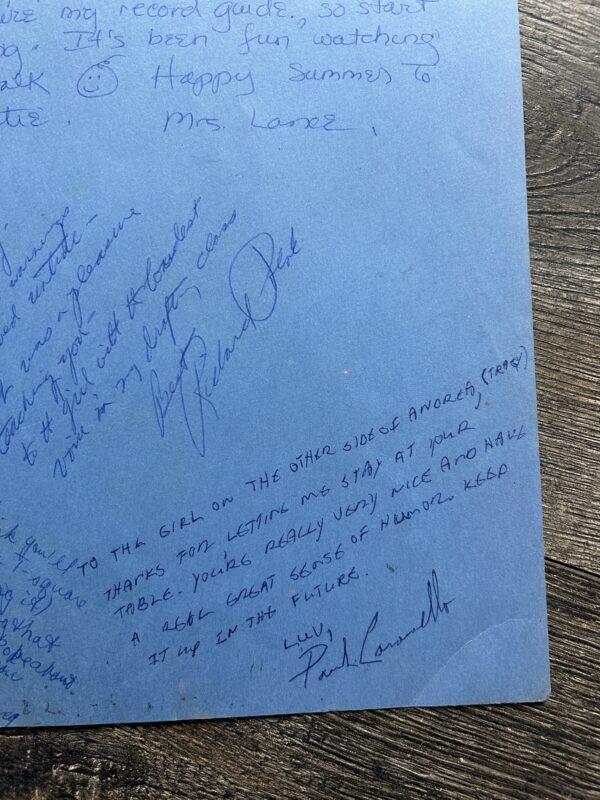 my record guide., so start
It's been fun watching
Happy Summer to
Mrs. Lance,
warnings
was a pleasure
teaching you-
to the girl with the loudest
voice in my drafting class
Best,
Richard
you'll
T-square
that
TO THE GIRL ON THE OTHER SIDE OF ANDREA, (TRACY)
THANKS FOR LETTING ME STAY AT YOUR
TABLE. YOU'RE REALLY VERY NICE AND HAVE
A REAL GREAT SENSE OF HUMOR. KEEP
IT UP IN THE FUTURE.
LUV,
Paul